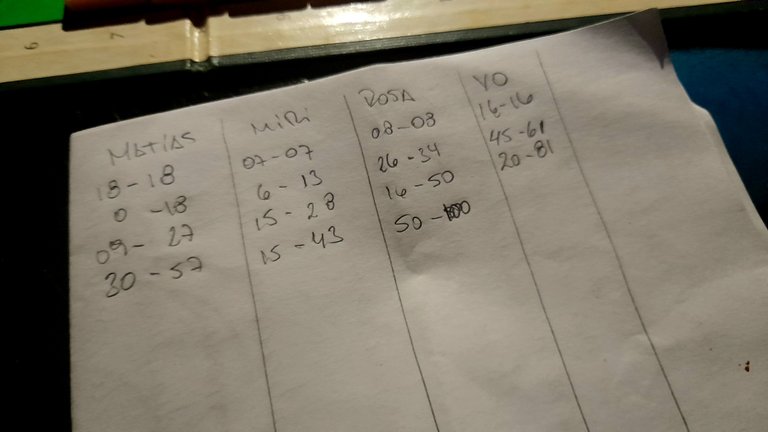 MATIAS MIRI ROSA YO
18-18 07-07 08-08 16-16
0-18 6-13 26-34 45-61
09-27 15-28 16-50 20-81
30-57 15-43 50-100